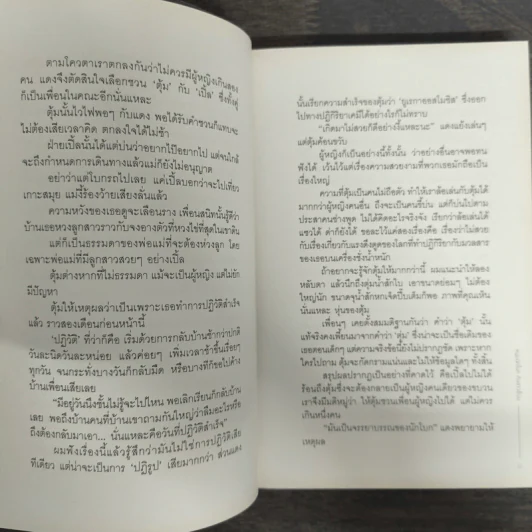 ตามโควตาเราตกลงกันว่าไม่ควรมีผู้หญิงเกินสอง
คน แดงจึงตัดสินใจเลือกชวน 'ตุ้ม' กับ 'เปิ้ล' ซึ่งทั้งคู่
ก็เป็นเพื่อนในคณะอีกนั่นแหละ
ตุ้มนั้นไวไฟพอๆ กับแดง พอได้รับคำชวนก็แทบจะ
ไม่ต้องเสียเวลาคิด ตกลงใจได้ไม่ช้า
ฝ่ายเปิ้ลนั้นได้แต่บ่นว่าอยากไปอีอยากไป แต่จนใกล้
จะถึงกำหนดการเดินทางแล้วแม่ก็ยังไม่อนุญาต
อย่าว่าแต่โบกรถไปเลย แค่เปิ้ลบอกว่าจะไปเที่ยว
เกาะสมุย แม่นี้ร้องว้ายเสียงลั่นแล้ว
ความหวังของเธอดูจะเลือนราง เพื่อนสนิทนั้นรู้ดีว่า
บ้านเธอหวงลูกสาวราวกับจงอางตัวที่หวงไข่ที่สุดในชาติ
แต่ก็เป็นธรรมดาของพ่อแม่ที่จะต้องห่วงลูก โดย
เฉพาะพ่อแม่ที่มีลูกสาวสวยๆ อย่างเปิ้ล
ตุ้มต่างหากที่ไม่ธรรมดา แม้จะเป็นผู้หญิง แต่ไม่ยัก
มีปัญหา
ตุ้มให้เหตุผลว่าเป็นเพราะเธอทำการปฏิวัติสำเร็จ
แล้ว ราวสองเดือนก่อนหน้านี้
'ปฏิวัติ' ที่ว่าก็คือ เริ่มด้วยการกลับบ้านช้ากว่าปกติ
วันละนิดวันละหน่อย แล้วค่อยๆ เพิ่มเวลาช้าขึ้นเรื่อยๆ
ทุกวัน จนกระทั่งบางวันก็กลับมืด หรือบางทีก็ขอไปค้าง
บ้านเพื่อนเสียเลย
"มีอยู่วันนึงชั้นไม่รู้จะไปไหน พอเลิกเรียนก็กลับบ้าน
เลย พอถึงบ้านคนที่บ้านเขาถามกันใหญ่ว่าลืมอะไรหรือ
ถึงต้องกลับมาเอา... นั่นแหละคือวันที่ปฏิวัติสำเร็จ"
ผมฟังเรื่องนี้แล้วรู้สึกว่ามันไม่ใช่การปฏิวัติเสีย
ทีเดียว แต่น่าจะเป็นการ 'ปฏิรูป' เสียมากกว่า ส่วนแดง
นั้นเรียกความสำเร็จของตุ้มว่า 'ยูเรกาออสโมซิส' ซึ่งออก
ไปทางปฏิกิริยาเคมีได้อย่างไรก็ไม่ทราบ
"เกิดมาไม่สวยก็ดีอย่างงี้แหละนะ" แดงแย้งเล่นๆ
แต่ตุ้มค้อนขวับ
ผู้หญิงก็เป็นอย่างนี้ทั้งนั้น ว่าอย่างอื่นอาจพอทน
ฟังได้ เว้นไว้แต่เรื่องความสวยงามที่พวกเธอมักถือเป็น
เรื่องใหญ่
ความที่ตุ้มเป็นคนไม่ถือตัว ทำให้เราล้อเล่นกับตุ้มได้
มากกว่าผู้หญิงคนอื่น ถึงจะเป็นคนขี้บ่น แต่ก็บ่นไปตาม
ประสาคนช่างพูด ไม่ได้คิดอะไรจริงจัง เรียกว่าล้อเล่นได้
แซวได้ ด่าก็ยังได้ ขออะไรแค่สองเรื่อง คือ เรื่องว่าไม่สวย
กับเรื่องเกี่ยวกับแรงดึงดูดของโลกที่ทำปฏิกิริยากับมวลสาร
ของเธอบนเครื่องชั่งน้ำหนัก
ถ้าอยากจะรู้จักตุ้มให้มากกว่านี้ ผมแนะนำให้ลอง
หลับตา แล้วนึกถึงตุ่มน้ำสักใบ เอาขนาดย่อมๆ ไม่ต้อง
ใหญ่นัก ขนาดจุน้ำสักหกเจ็ดปี๊บเต็มก็พอ ภาพที่คุณเห็น
นั่นแหละ หุ่นของตุ้ม
เพื่อนๆ เคยตั้งสมมติฐานกันว่า คำว่า 'ตุ้ม' นั้น
แท้จริงคงเพี้ยนมาจากคำว่า 'ตุ่ม' ซึ่งน่าจะเป็นชื่อเดิมของ
เธอตอนเด็กๆ แต่ความจริงข้อนี้ยังไม่ปรากฏชัด เพราะหาก
ใครไปถาม ตุ้มจะกัดกรามแน่นและไม่ให้ข้อมูลใดๆ ทั้งสิ้น
สรุปผลปรากฏเป็นอย่างที่คาดไว้ คือเปิ้ลไปไม่ได้
ร้อนถึงตุ้มซึ่งจะต้องกลายเป็นผู้หญิงคนเดียวของขบวน
เราจึงมีมติหมู่ว่า ให้ตุ้มชวนเพื่อนผู้หญิงไปได้ แต่ไม่ควร
เกินหนึ่งคน
"มันเป็นจรรยาบรรณของนักโบก" แดงพยายามให้
เหตุผล